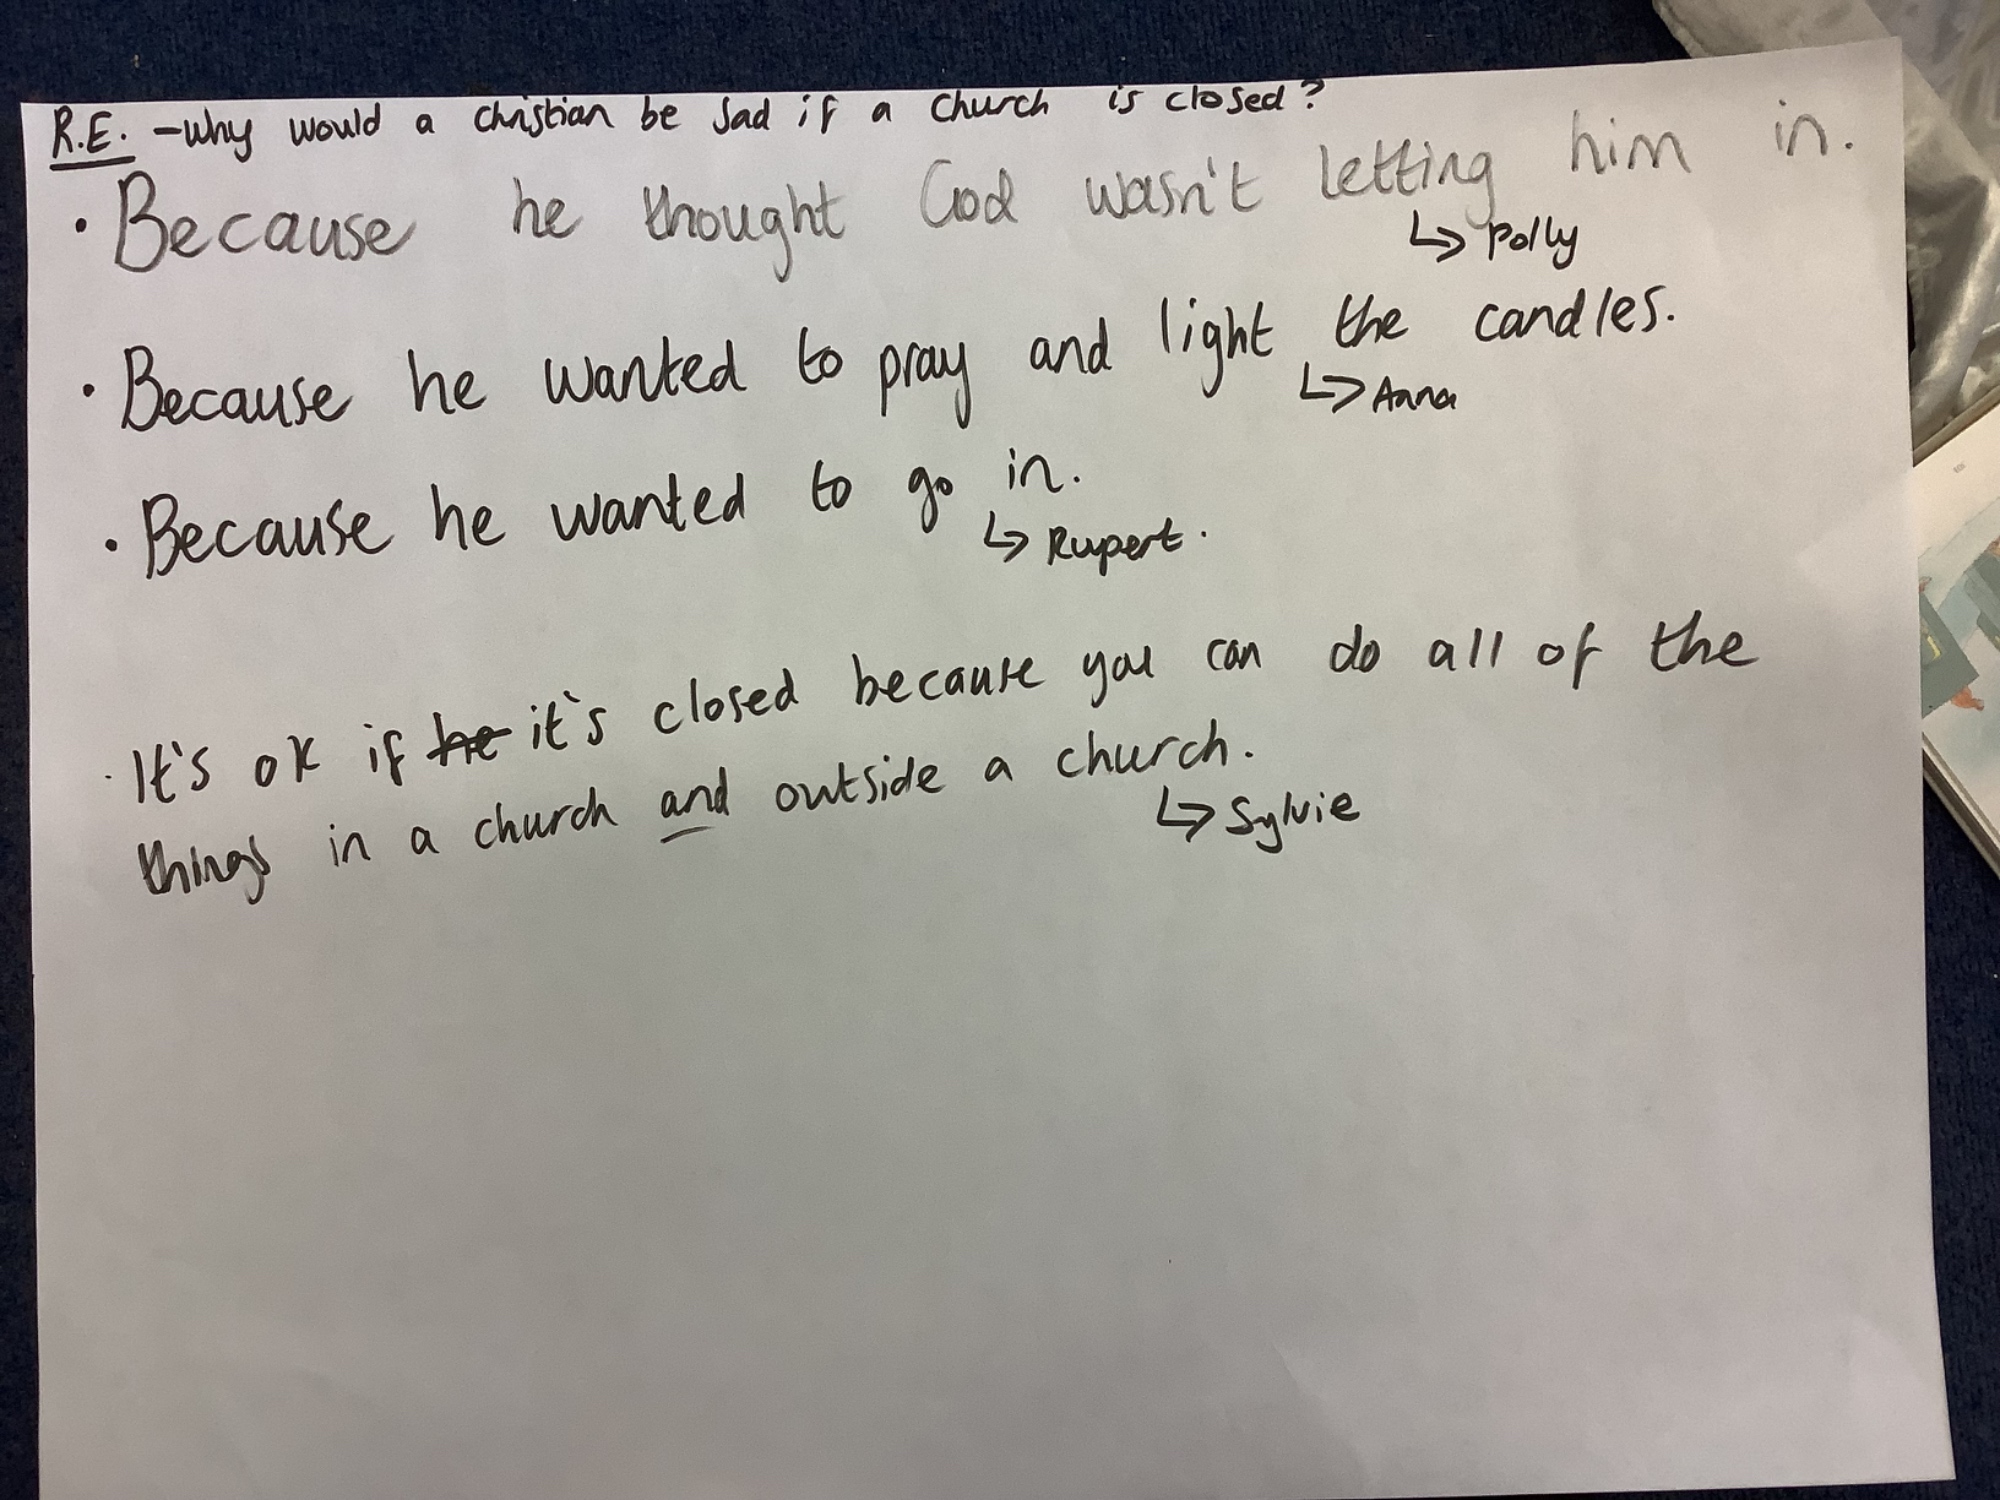 R.E. - Why would a christian be sad if a church is closed?
• Because he thought God wasn't letting him in.
↳ Polly
• Because he wanted to pray and light the candles.
↳ Anna
• Because he wanted to go in.
↳ Rupert.
· It's ok if he it's closed because you can do all of the
things in a church and outside a church.
↳ Sylvie